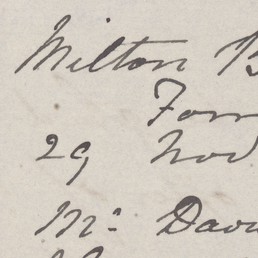 Milton B
Forr
29 Nov
Mr. Davi